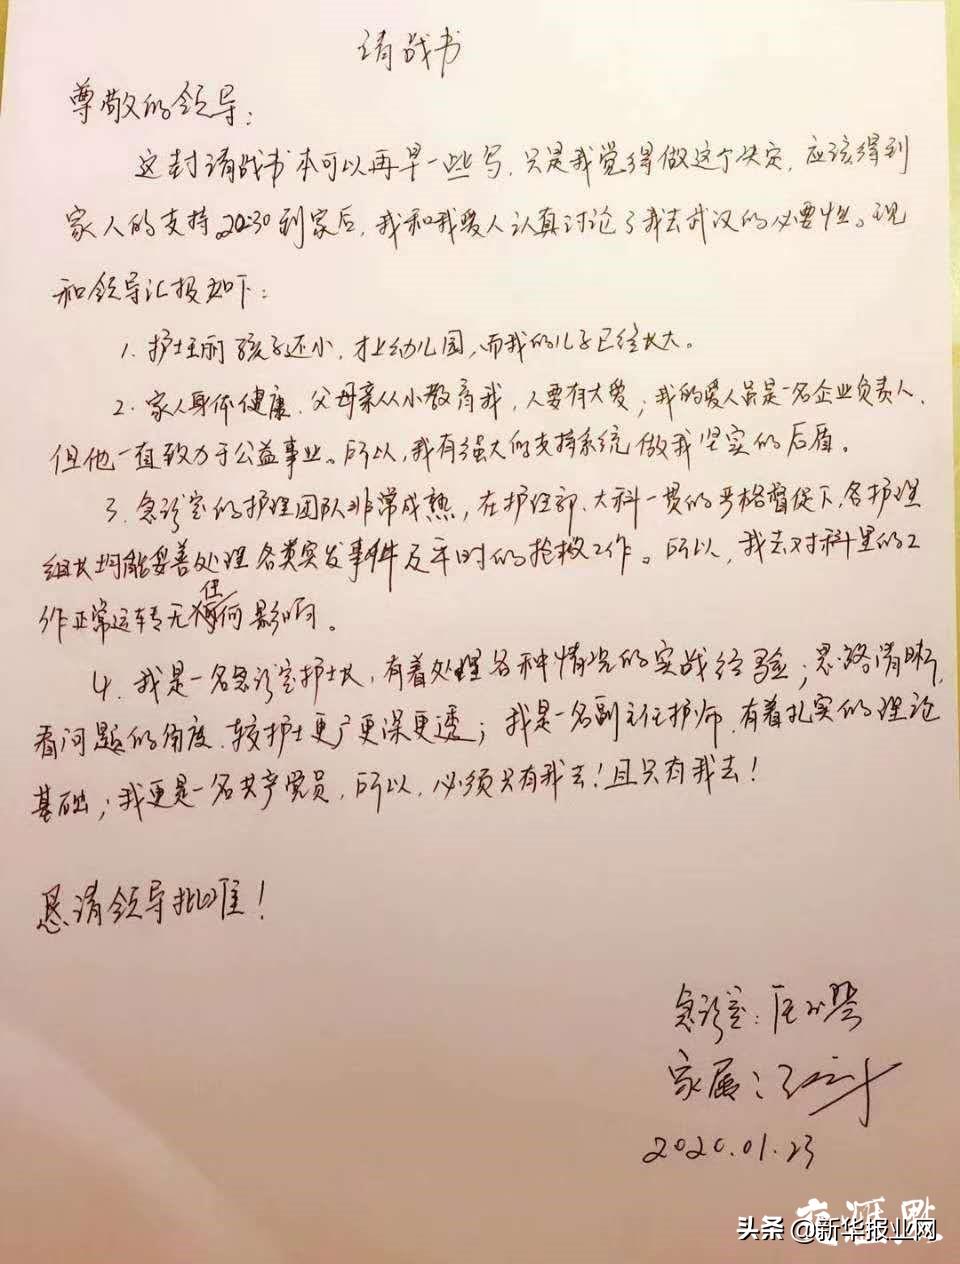 请战书
尊敬的领导：
这封请战书本可以再早一些写，只是我觉得做这个决定，应该得到
家人的支持。20:30到家后，我和我爱人认真讨论了我去武汉的必要性。现
和领导汇报如下：
1. 护士王丽孩子还小，才上幼儿园，而我的儿子已经长大。
2. 家人身体健康，父母亲从小教育我，人要有大爱；我的爱人虽是一名企业负责人，
但他一直致力于公益事业。所以，我有强大的支持系统做我坚实的后盾。
3. 急诊室的护理团队非常成熟，在护理部、大科一贯的严格督促下，各护理
组长均能妥善处理各类突发事件及平时的抢救工作。所以，我去对科里的工
作正常运转无任何影响。
4. 我是一名急诊室护士长，有着处理各种情况的实战经验；思路清晰，
看问题的角度，较护士更广更深更透；我是一名副主任护师，有着扎实的理论
基础；我更是一名共产党员，所以，必须只有我去！且只有我去！
恳请领导批准！
急诊室：
家属：
2020.01.23
交汇点
头条 @新华报业网